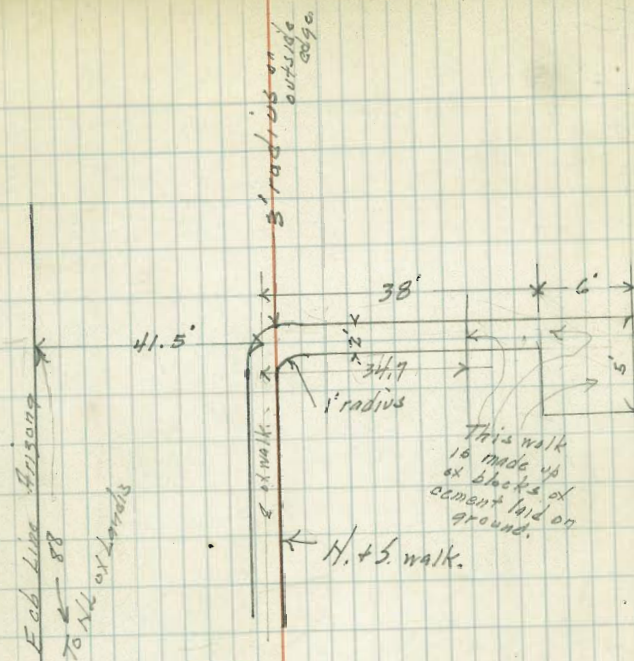 3' radius on
outside
edge.
38'
6'
41.5'
2'
34.7
5'
1' radius
This walk
is made up
of blocks of
cement laid on
ground.
℄ of walk.
N. & S. walk.
E cb Line Arizona
88
To NL of Landis